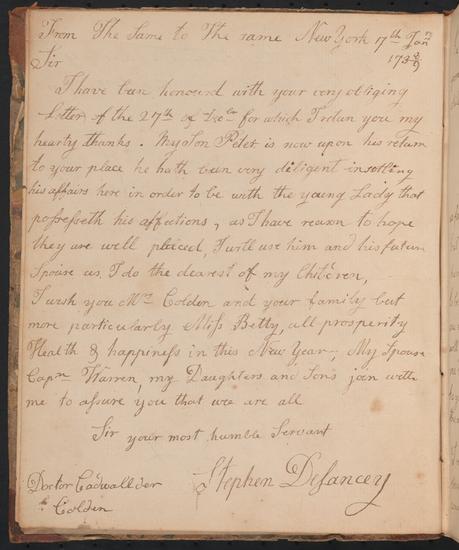 From The Same to The same New York 17th Janry
Sir 173 8/9
I have been honourd with your very obliging
Letter of the 27th of Decbr for which I retun you my
hearty thanks. My Son Peter is now upon his return
to your place he hath been very diligent in settling
his affairs here in order to be with the young Lady that
possesseth his affections, as I have reason to hope
they are well placed, I will use him and his future
Spouse as I do the dearest of my Children,
I wish you Mrs Colden and your family but
more particularly Miss Betty, all prosperity
Health & happiness in this New Year; My Spouse
Capn Warren my Daughters and Sons join with
me to assure you that we are all
Sir your most humble Servant
Stephen Delancey
Doctor Cadwallder
Colden